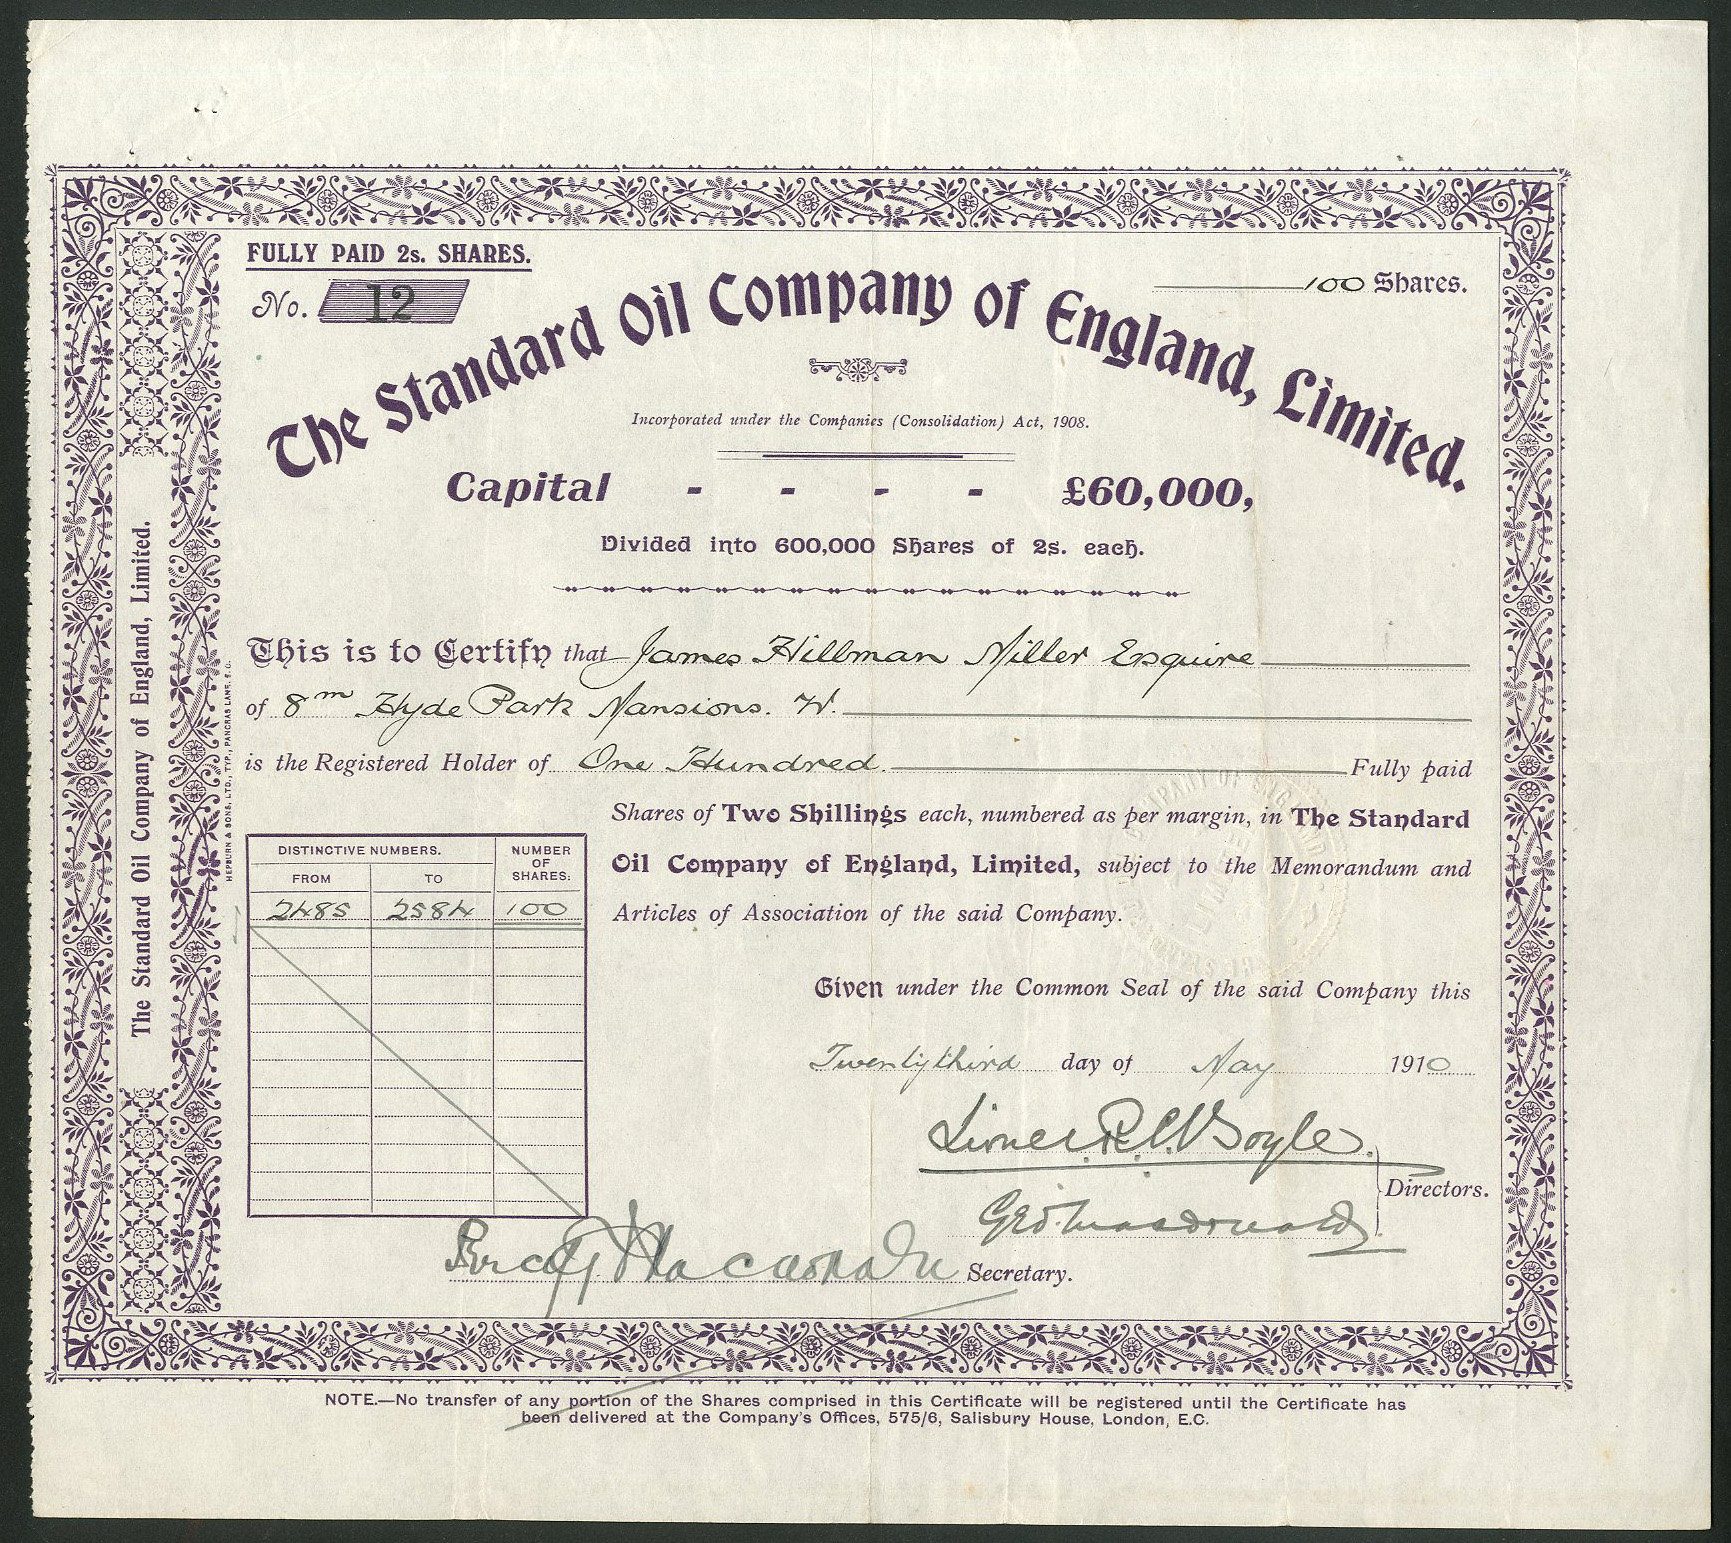 FULLY PAID 2s. SHARES.
No. 12
100 Shares.
The Standard Oil Company of England, Limited.
Incorporated under the Companies (Consolidation) Act, 1908.
Capital - - - - £60,000,
Divided into 600,000 Shares of 2s. each.
This is to Certify that James Hillman Miller Esquire
of 8m Hyde Park Mansions. W.
is the Registered Holder of One Hundred Fully paid
Shares of Two Shillings each, numbered as per margin, in The Standard
Oil Company of England, Limited, subject to the Memorandum and
Articles of Association of the said Company.
DISTINCTIVE NUMBERS. NUMBER OF SHARES:
FROM TO
2485 2584 100
Given under the Common Seal of the said Company this
Twentythird day of May 1910
Lionel R.C. Boyle
Directors.
Geo.
Percy
Secretary.
The Standard Oil Company of England, Limited.
HEPBURN & SONS, LTD., TYP., PANCRAS LANE, E.C.
NOTE.—No transfer of any portion of the Shares comprised in this Certificate will be registered until the Certificate has
been delivered at the Company's Offices, 575/6, Salisbury House, London, E.C.